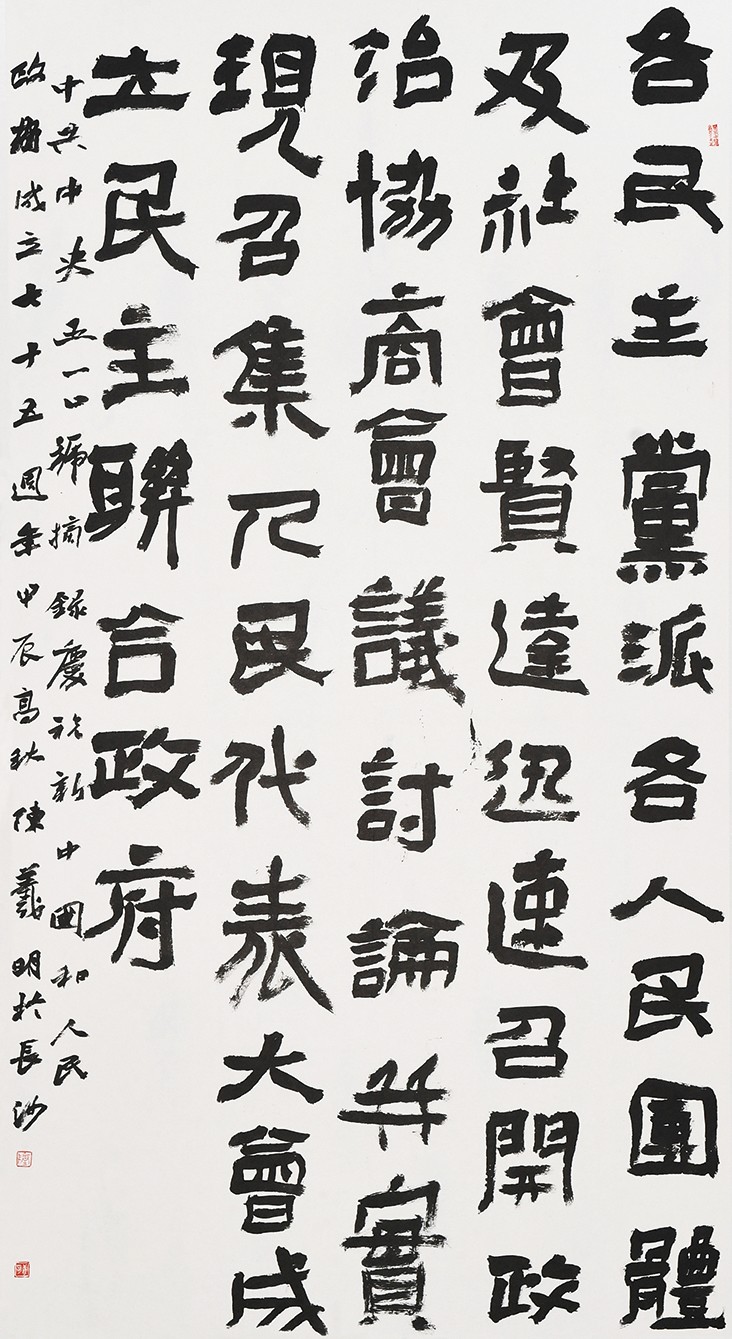 各民主黨派各人民團體
及社會賢達迅速召開政
治協商會議討論并實
現召集人民代表大會成
立民主聯合政府
中共中央五一口號摘錄慶祝新中國和人民
政權成立七十五週年甲辰高秋陳羲明於長沙